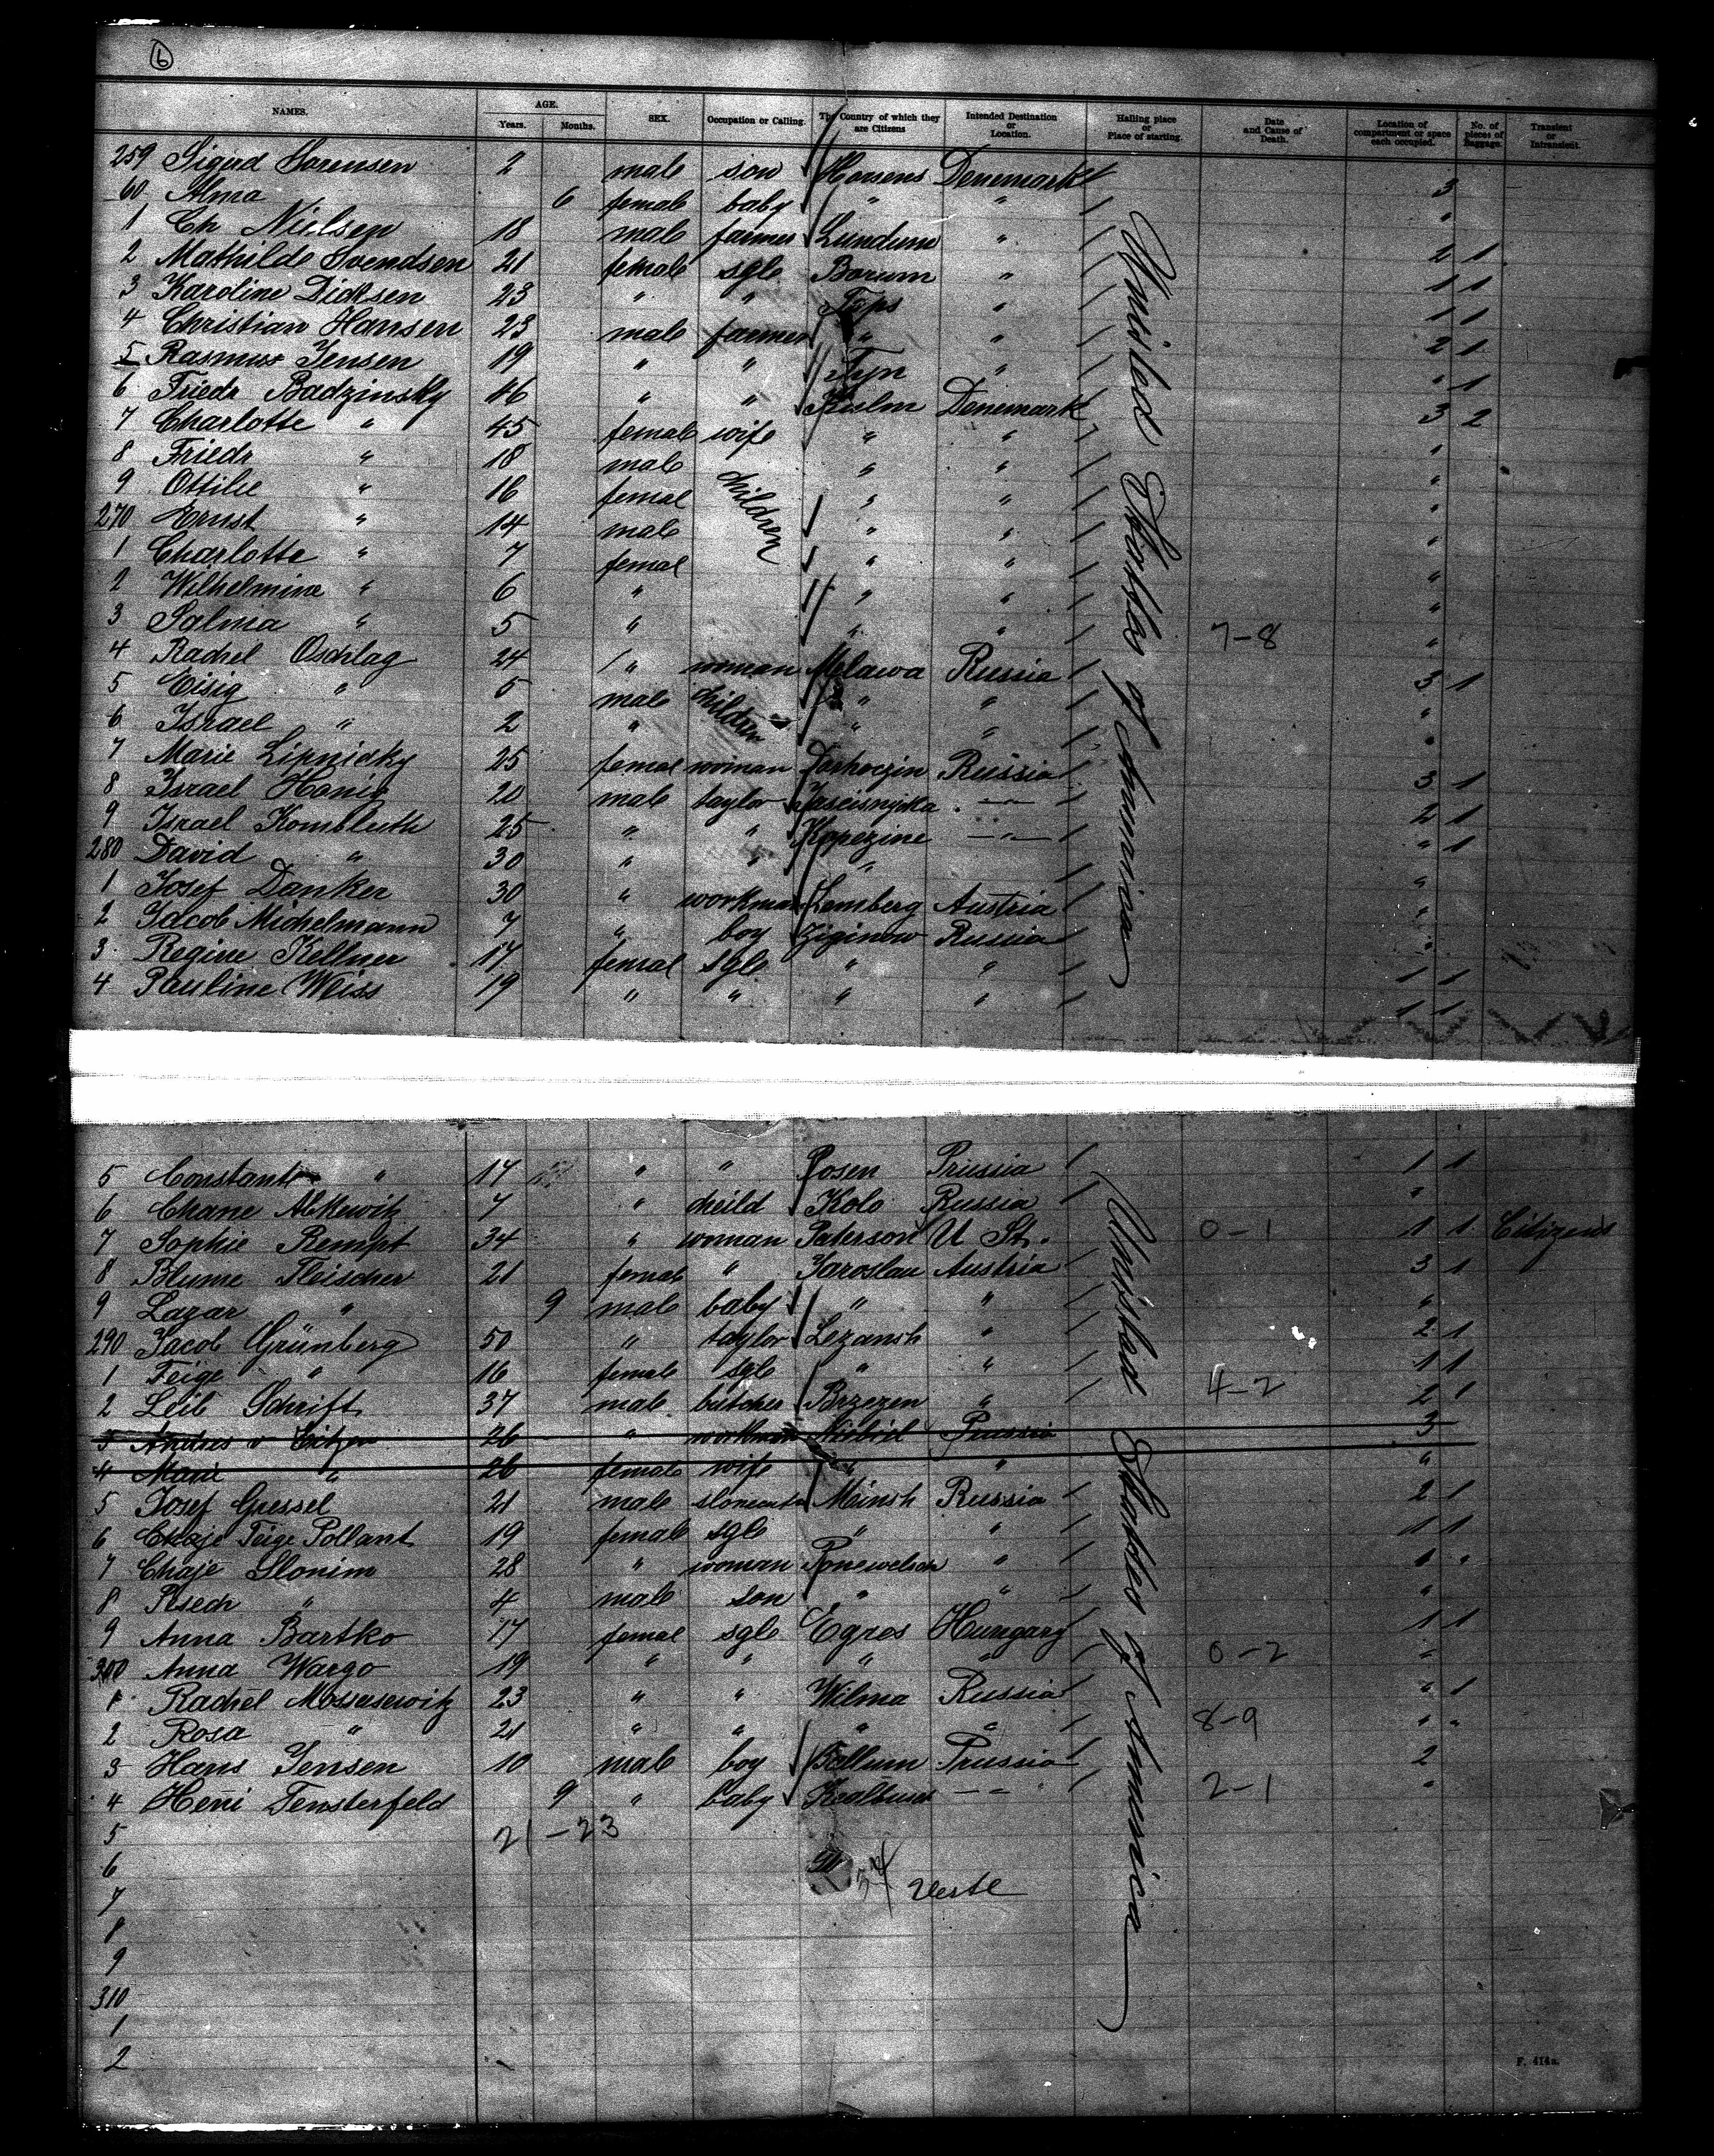 6
NAMES. AGE. Years. Months. SEX. Occupation or Calling. The Country of which they are Citizens Intended Destination or Location. Halling place or Place of starting. Date and Cause of Death. Location of compartment or space each occupied. No. of pieces of Baggage. Transient or Intransient.
259 Sigurd Sorensen 2 male son Horsens Denemark 3
60 Alma 6 female baby " " "
1 Ch Nielsen 18 male farmer Lundum " 2 1
2 Mathilde Svendsen 21 female sgle Borum " 1 1
3 Karoline Dicksen 23 " " Taps " 1 1
4 Christian Hansen 23 male farmer " " 2 1
5 Rasmus Jensen 19 " " Fyn " " 1
6 Friedr Badzinsky 46 " " Denemark 3 2
7 Charlotte " 45 female wife " " "
8 Friedr " 18 male children " " "
9 Ottilie " 16 femal " " "
270 Ernst " 14 male " " "
1 Charlotte " 7 femal " " "
2 Wilhelmine " 6 " " " "
3 Salma " 5 " " " 7-8 "
4 Rachel Oschlag 24 " woman Mlawa Russia 3 1
5 Eisig " 5 male children " " "
6 Israel " 2 " " " "
7 Marie Lipnicky 25 femal woman Russia 3 1
8 Israel Honig 20 male taylor " 2 1
9 Israel Kornbluth 25 " " Kopezine " " 1
280 David " 30 " " " "
1 Josef Danker 30 " workman Lemberg Austria "
2 Jacob Michelmann 7 " boy Ziginow Russia "
3 Regine Kellner 17 femal sgle " " 1 1
4 Pauline Weiss 19 " " " " 1 1
United States of America
5 Constant " 17 " " Posen Prussia 1 1
6 Chane Abkewitz 7 " child Kolo Russia "
7 Sophie Rempt 34 " woman Paterson U St. 0-1 1 1 Citizens
8 Blume Fleischer 21 female " Jaroslau Austria 3 1
9 Lazar " 9 male baby " " "
290 Jacob Grünberg 50 " taylor Lezansk " 2 1
1 Feige " 16 female sgle " " 1 1
2 Leib Schrift 37 male butcher Brzezen " 4-2 2 1
3 Andres v Eitzen 26 " workman Prussia 3
4 Marie " 26 female wife " " "
5 Josef Gressel 21 male Minsk Russia 2 1
6 Chaje Feige Pollant 19 female sgle " " 1 1
7 Chaje Slonim 28 " woman Ponewelsch " 1 "
8 " 4 male son " " "
9 Anna Bartko 17 femal sgle Egres Hungary 1 1
300 Anna Wargo 19 " " " " 0-2 "
1 Rachel Mossesewitz 23 " " Wilma Russia " 1
2 Rosa " 21 " " " " 8-9 " "
3 Hans Jensen 10 male boy Prussia 2
4 Heni Fensterfeld 9 " baby " 2-1 "
5 21-23
6
7
8
9
310
1
2
United States of America
F. 414a.